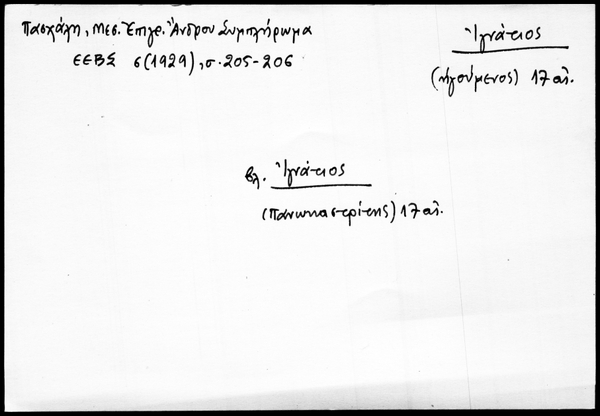 Πασχάλη, Μεσ. Ἐπιγρ. Ἄνδρου Συμπλήρωμα
ΕΕΒΣ 6(1929), σ. 205-206
Ἰγνάτιος
(ηγούμενος) 17 αἰ.
βλ. Ἰγνάτιος
(Πανωκαστρίτης) 17 αἰ.